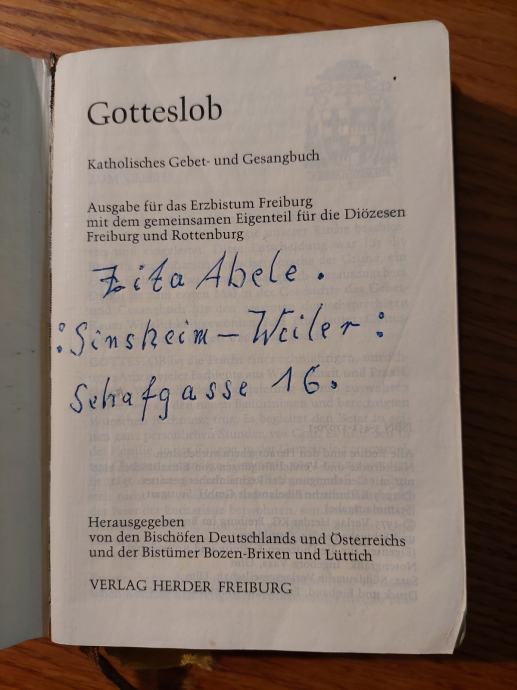 Gotteslob
Katholisches Gebet- und Gesangbuch
Ausgabe für das Erzbistum Freiburg
mit dem gemeinsamen Eigenteil für die Diözesen
Freiburg und Rottenburg
Zita Abele.
:Sinsheim – Weiler:
Schafgasse 16.
Herausgegeben
von den Bischöfen Deutschlands und Österreichs
und der Bistümer Bozen-Brixen und Lüttich
VERLAG HERDER FREIBURG